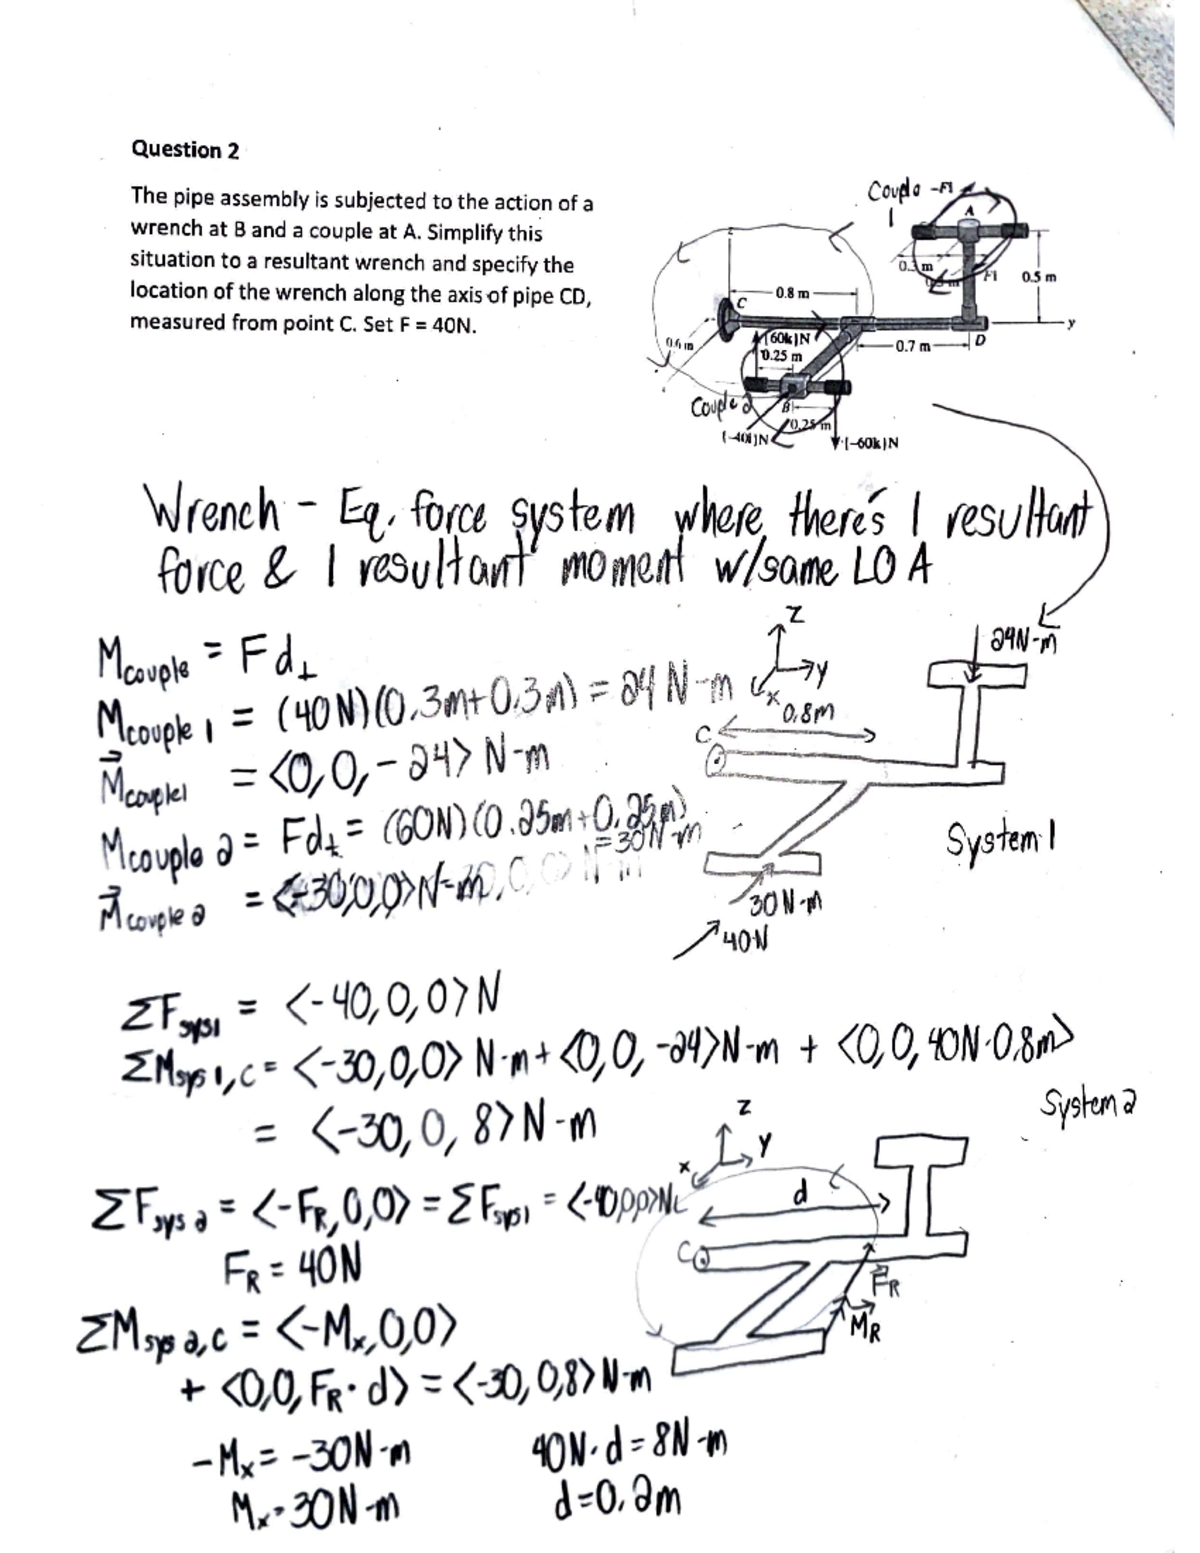 Question 2
The pipe assembly is subjected to the action of a
wrench at B and a couple at A. Simplify this
situation to a resultant wrench and specify the
location of the wrench along the axis of pipe CD,
measured from point C. Set F = 40N.
Couple 1
-F1
A
0.3 m
F1
0.5 m
z
0.8 m
C
y
0.6 m
{60k}N
0.25 m
0.7 m
D
Couple 2
B
0.25 m
{-40i}N
{-60k}N
Wrench - Eq. force system where there's 1 resultant
force & 1 resultant moment w/same LOA
M couple = Fd⊥
M couple 1 = (40N)(0.3m+0.3m) = 24 N-m
M⃗ couple1 = <0,0,-24> N-m
M couple 2 = Fd⊥ = (60N)(0.25m+0.25m) = 30N-m
M⃗ couple 2 = <-30,0,0>N-m
z
y
x
0.8m
C
24N-m
System 1
30N-m
40N
ΣF sys1 = <-40,0,0>N
ΣM sys 1,c = <-30,0,0> N-m + <0,0,-24>N-m + <0,0,40N·0.8m>
= <-30,0,8>N-m
System 2
z
y
x
ΣF sys 2 = <-FR,0,0> = ΣF sys1 = <-40,0,0>N
d
C
FR = 40N
F⃗R
M⃗R
ΣM sys 2,c = <-Mx,0,0>
+ <0,0,FR·d> = <-30,0,8>N-m
-Mx = -30N-m
40N·d = 8N-m
Mx = 30N-m
d=0.2m